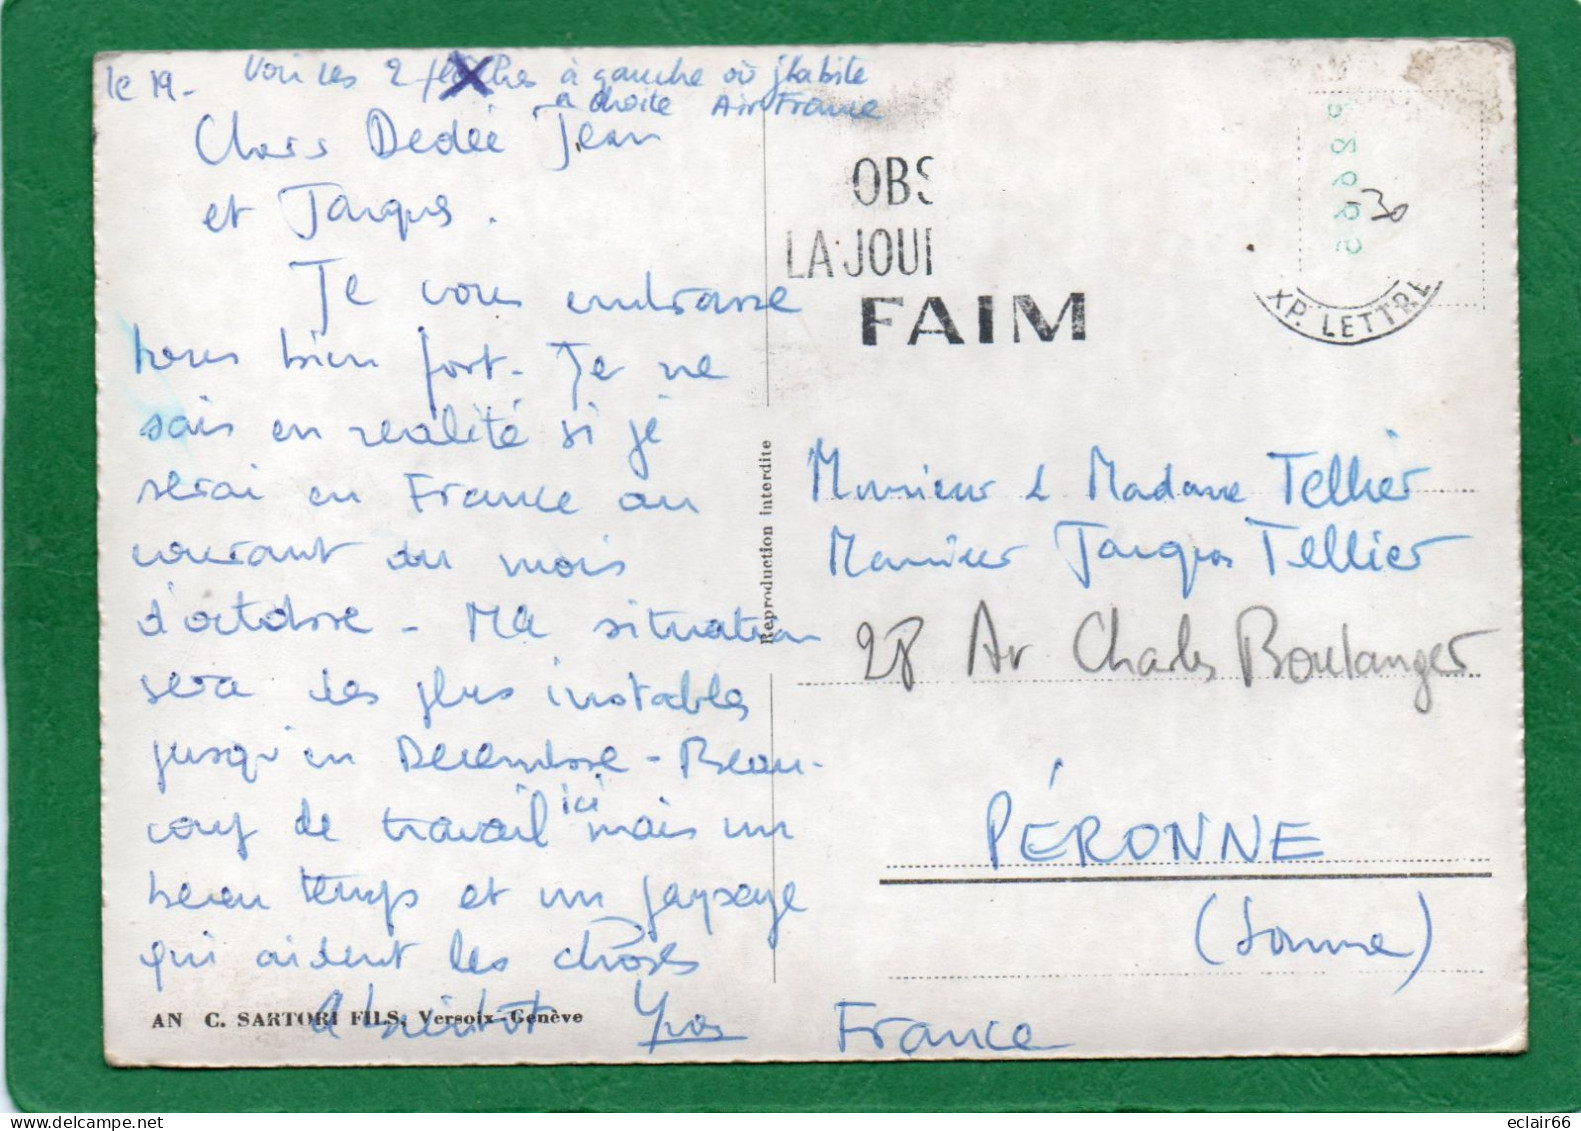 le 19-
Voir les 2 flèches à gauche où j'habite
à droite Air France
Chers Dedée Jean
et Jacques.
Je vous embrasse
tous bien fort. Je ne
sais en réalité si je
serai en France au
courant du mois
d'octobre - Ma situation
sera des plus instables
jusqu'en Décembre - Beau-
coup de travail ici mais un
beau temps et un paysage
qui aident les choses
A bientôt Yves
AN C. SARTORI FILS, Versoix-Genève
Reproduction interdite
OBS
LA JOUR
FAIM
XP. LETTRE
-30
Monsieur & Madame Tellier
Monsieur Jacques Tellier
28 Av Charles Boulanger
PÉRONNE
(Somme)
France
eclair66